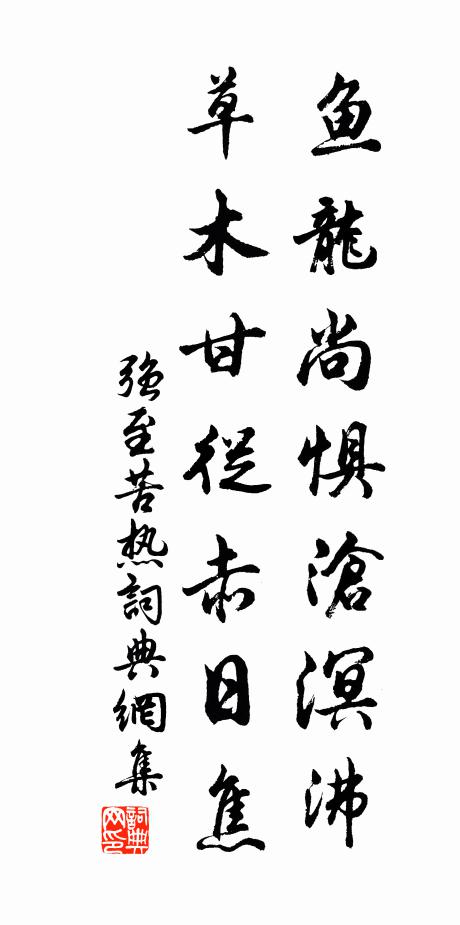 鱼龍尚惧滄溟沸
草木甘從赤日焦
强至苦热詞典網集
詞典网印